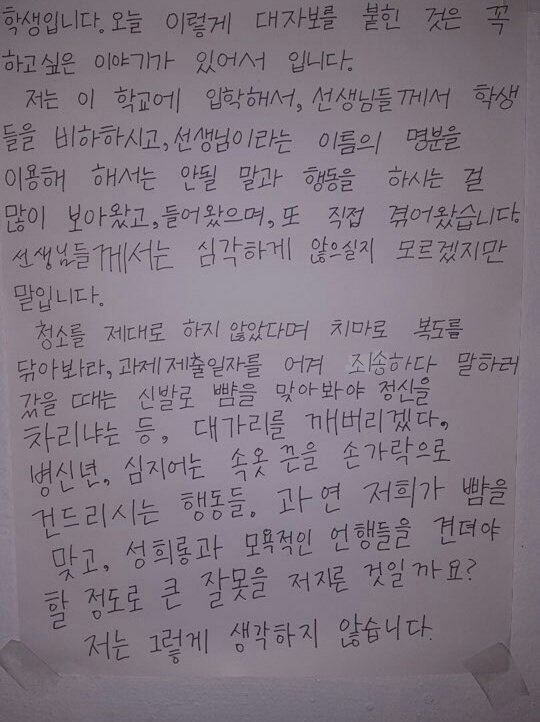 학생입니다. 오늘 이렇게 대자보를 붙힌 것은 꼭
하고싶은 이야기가 있어서 입니다.
저는 이 학교에 입학해서, 선생님들께서 학생
들을 비하하시고, 선생님이라는 이름의 명분을
이용해 해서는 안될 말과 행동을 하시는 걸
많이 보아왔고, 들어왔으며, 또 직접 겪어왔습니다.
선생님들께서는 심각하게 않으실지 모르겠지만
말입니다.
청소를 제대로 하지 않았다며 치마로 복도를
닦아봐라, 과제제출일자를 어겨 죄송하다 말하러
갔을 때는 신발로 뺨을 맞아봐야 정신을
차리냐는 등, 대가리를 깨버리겠다,
병신년, 심지어는 속옷 끈을 손가락으로
건드리시는 행동들. 과연 저희가 뺨을
맞고, 성희롱과 모욕적인 언행들을 견뎌야
할 정도로 큰 잘못을 저지른 것일까요?
저는 그렇게 생각하지 않습니다.